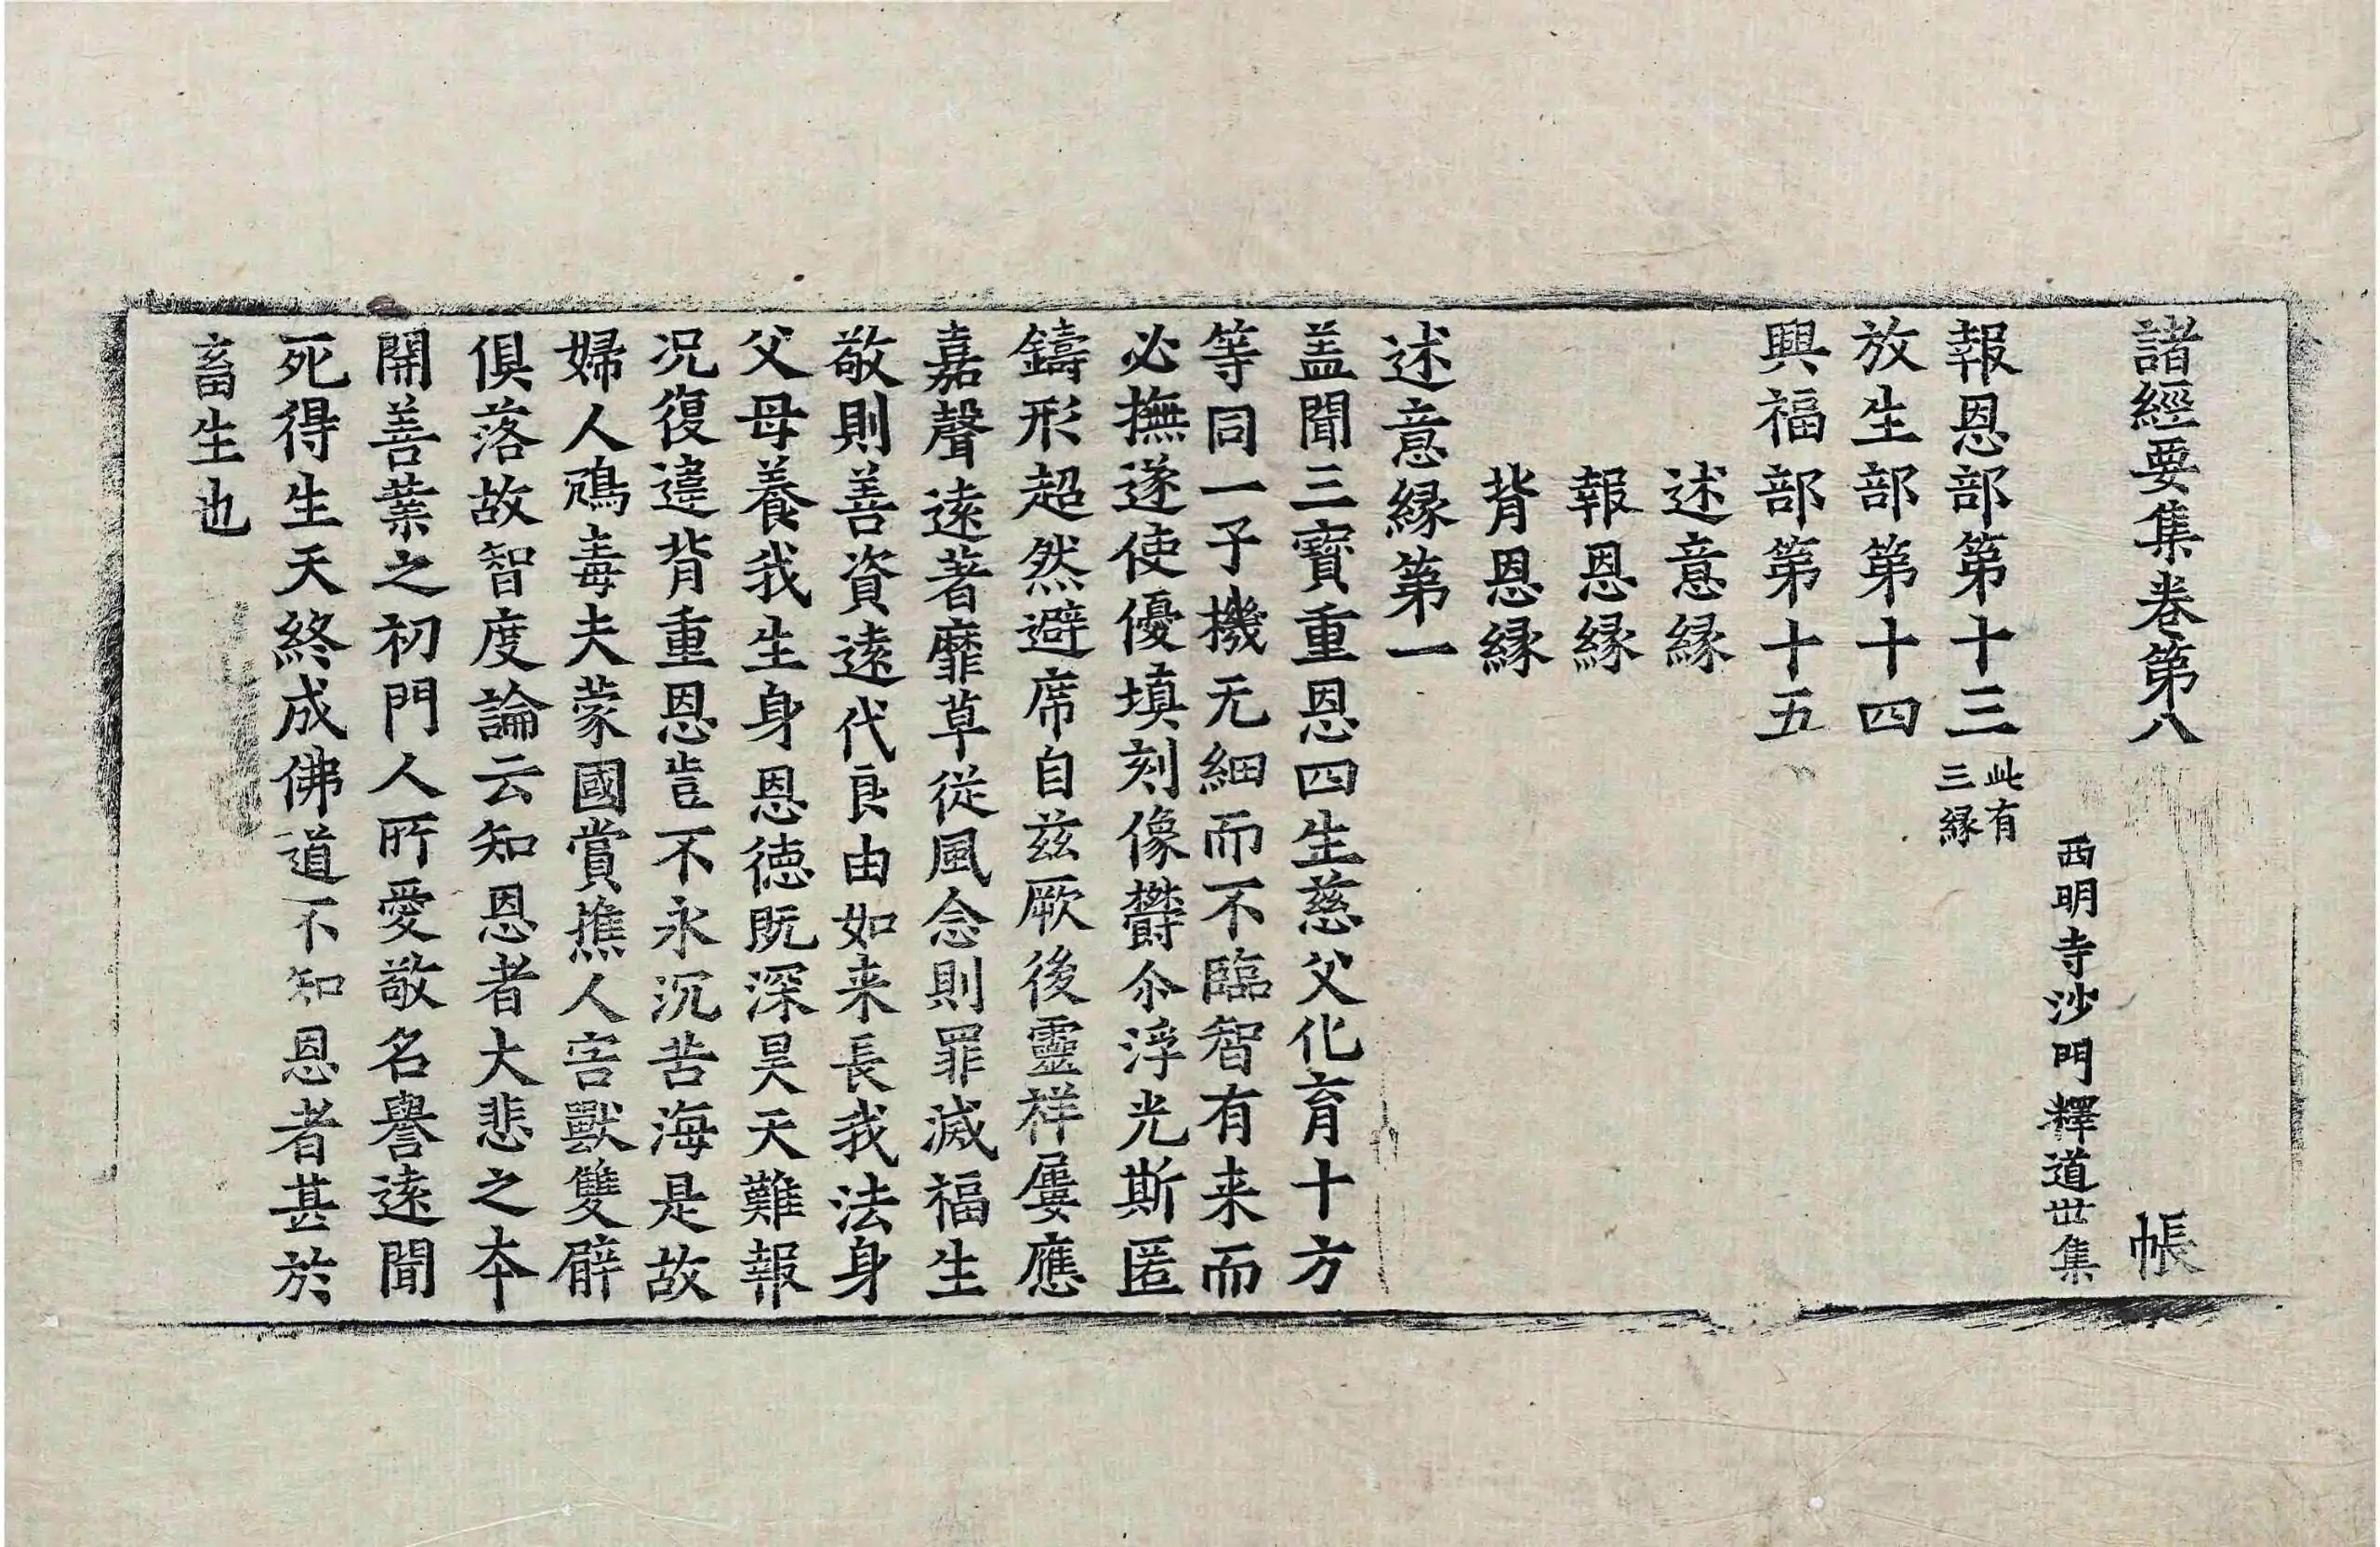 諸經要集卷第八 帳
西明寺沙門釋道世集
報恩部第十三 此有三縁
放生部第十四
興福部第十五
述意縁
報恩縁
背恩縁
述意縁第一
盖聞三寳重恩四生慈父化育十方
等同一子機无細而不臨智有来而
必撫遂使優填刻像欝尒浮光斯匿
鑄形超然避席自兹厥後靈祥屢應
嘉聲遠著靡草從風念則罪滅福生
敬則善資遠代良由如来長我法身
父母養我生身恩德既深昊天難報
况復違背重恩豈不永沉苦海是故
婦人鴆毒夫蒙國賞樵人害獸雙臂
俱落故智度論云知恩者大悲之本
開善業之初門人所愛敬名譽遠聞
死得生天終成佛道不知恩者甚於
畜生也